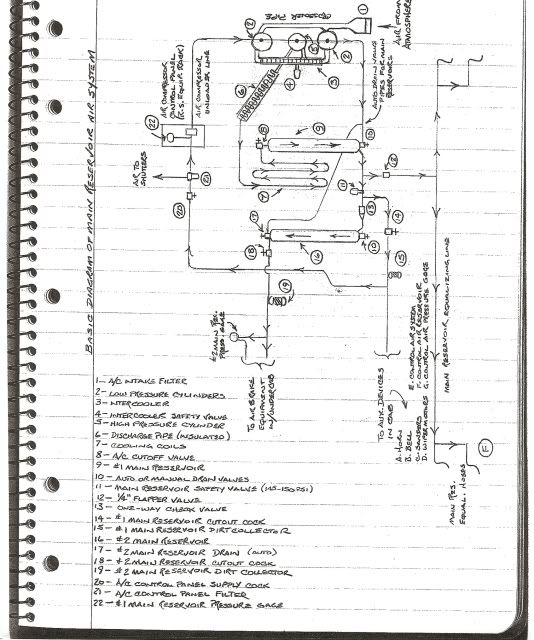 BASIC DIAGRAM OF MAIN RESERVOIR AIR SYSTEM
CROSSOVER PIPE
AIR FROM
ATMOSPHERE
AIR COMPRESSOR
CONTROL PANEL
(R.S. EQUIP. RACK)
AIR COMPRESSOR
UNLOADER LINE
AUTO DRAIN VALVE
PIPES FOR MAIN
RESERVOIRS
AIR TO
SHUTTERS
#2 MAIN RES.
PRESS. GAGE
TO AIR BRAKE
EQUIPMENT
IN/UNDER CAB
TO AUX. DEVICES
IN CAB
A. HORN
B. BELL
C. SANDERS
D. WIPER MOTORS
E. CONTROL AIR SYSTEM
F. CONTROL AIR RESERVOIR
G. CONTROL AIR PRESSURE GAGE
MAIN RESERVOIR EQUALIZING LINE
MAIN RES.
EQUAL. HOSES
F
1- A/C INTAKE FILTER
2- LOW PRESSURE CYLINDERS
3- INTERCOOLER
4- INTERCOOLER SAFETY VALVE
5- HIGH PRESSURE CYLINDER
6- DISCHARGE PIPE (INSULATED)
7- COOLING COILS
8- A/C CUTOFF VALVE
9- #1 MAIN RESERVOIR
10- AUTO OR MANUAL DRAIN VALVES
11- MAIN RESERVOIR SAFETY VALVE (145-150 PSI)
12- 1/4" FLAPPER VALVE
13- ONE-WAY CHECK VALVE
14- #1 MAIN RESERVOIR CUTOUT COCK
15- #1 MAIN RESERVOIR DIRT COLLECTOR
16- #2 MAIN RESERVOIR
17- #2 MAIN RESERVOIR DRAIN (AUTO)
18- #2 MAIN RESERVOIR CUTOUT COCK
19- #2 MAIN RESERVOIR DIRT COLLECTOR
20- A/C CONTROL PANEL SUPPLY COCK
21- A/C CONTROL PANEL FILTER
22- #1 MAIN RESERVOIR PRESSURE GAGE